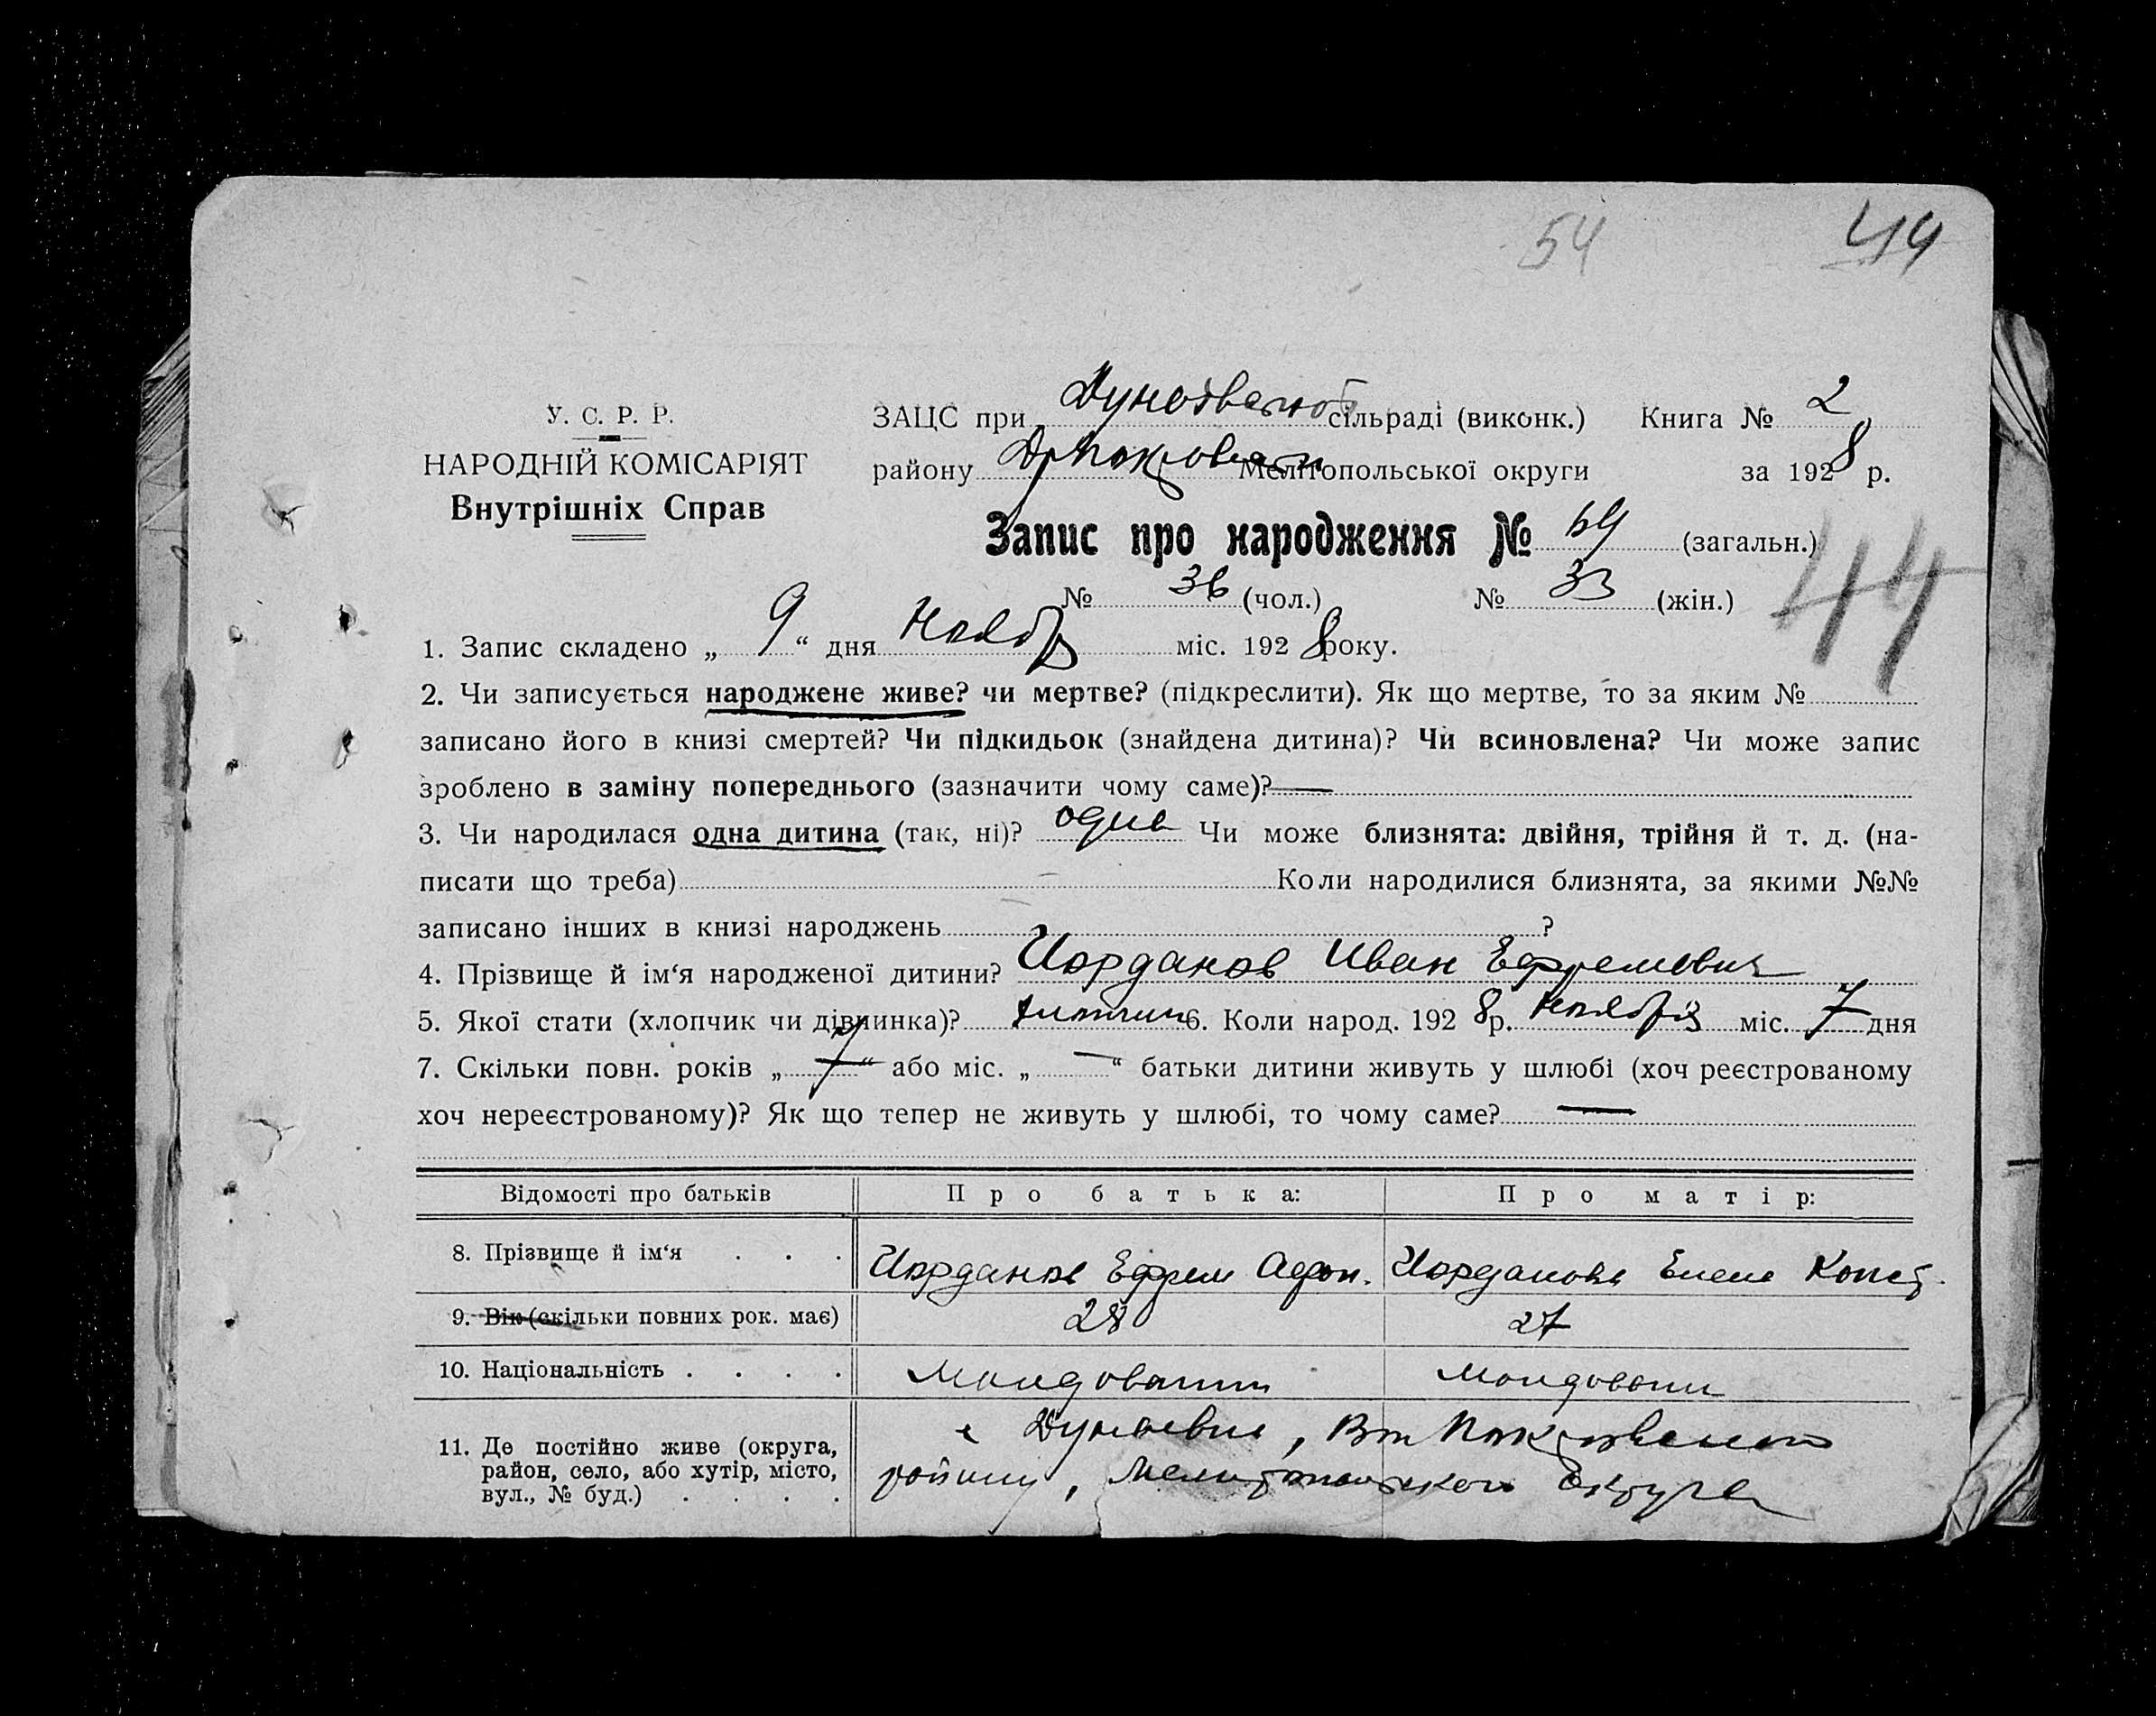 54 44
У. С. Р. Р.
НАРОДНІЙ КОМІСАРІЯТ
Внутрішніх Справ
ЗАЦС при сільраді (виконк.) Книга № 2
району Мелітопольської округи за 1928 р.
Запис про народження № 69 (загальн.)
№ 36 (чол.) № 33 (жін.)
44
1. Запис складено „ 9 “ дня Ноябр міс. 1928 року.
2. Чи записується народжене живе? чи мертве? (підкреслити). Як що мертве, то за яким №
записано його в книзі смертей? Чи підкидьок (знайдена дитина)? Чи всиновлена? Чи може запис
зроблено в заміну попереднього (зазначити чому саме)? —
3. Чи народилася одна дитина (так, ні)? одна Чи може близнята: двійня, трійня й т. д. (на-
писати що треба) Коли народилися близнята, за якими №№
записано інших в книзі народжень ?
4. Прізвище й ім‘я народженої дитини? Иорданов Иван Ефремович
5. Якої стати (хлопчик чи дівчинка)? 6. Коли народ. 1928 р. ноября міс. 7 дня
7. Скільки повн. років „ 7 “ або міс. „ — “ батьки дитини живуть у шлюбі (хоч реєстрованому
хоч нереєстрованому)? Як що тепер не живуть у шлюбі, то чому саме? —
Відомості про батьків Про батька: Про матір:
8. Прізвище й ім‘я . . . Иорданов Ефрем Афон. Иорданова Елена Конст.
9. Вік (скільки повних рок. має) 28 27
10. Національність . . . . Молдованин Молдовани
11. Де постійно живе (округа, район, село, або хутір, місто, вул., № буд.) . . . .
с Дунаевка, Покровского
району, Мелитопольского Округа